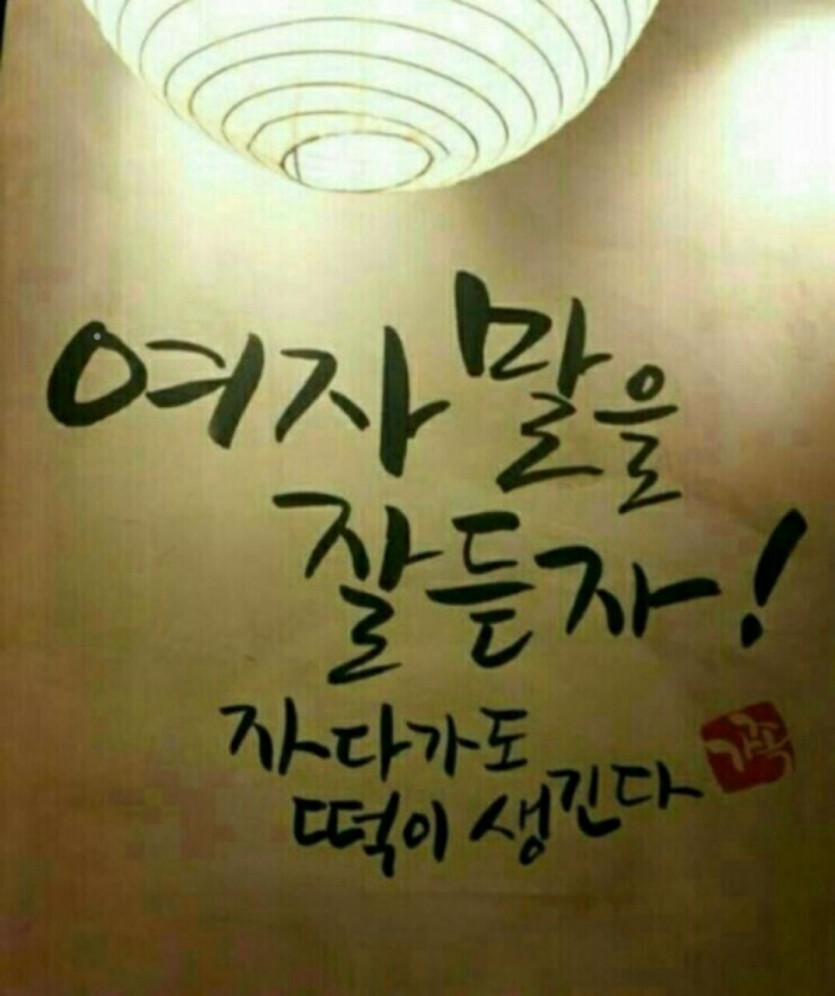 여자 말을
잘 듣자!
자다가도
떡이 생긴다
가족